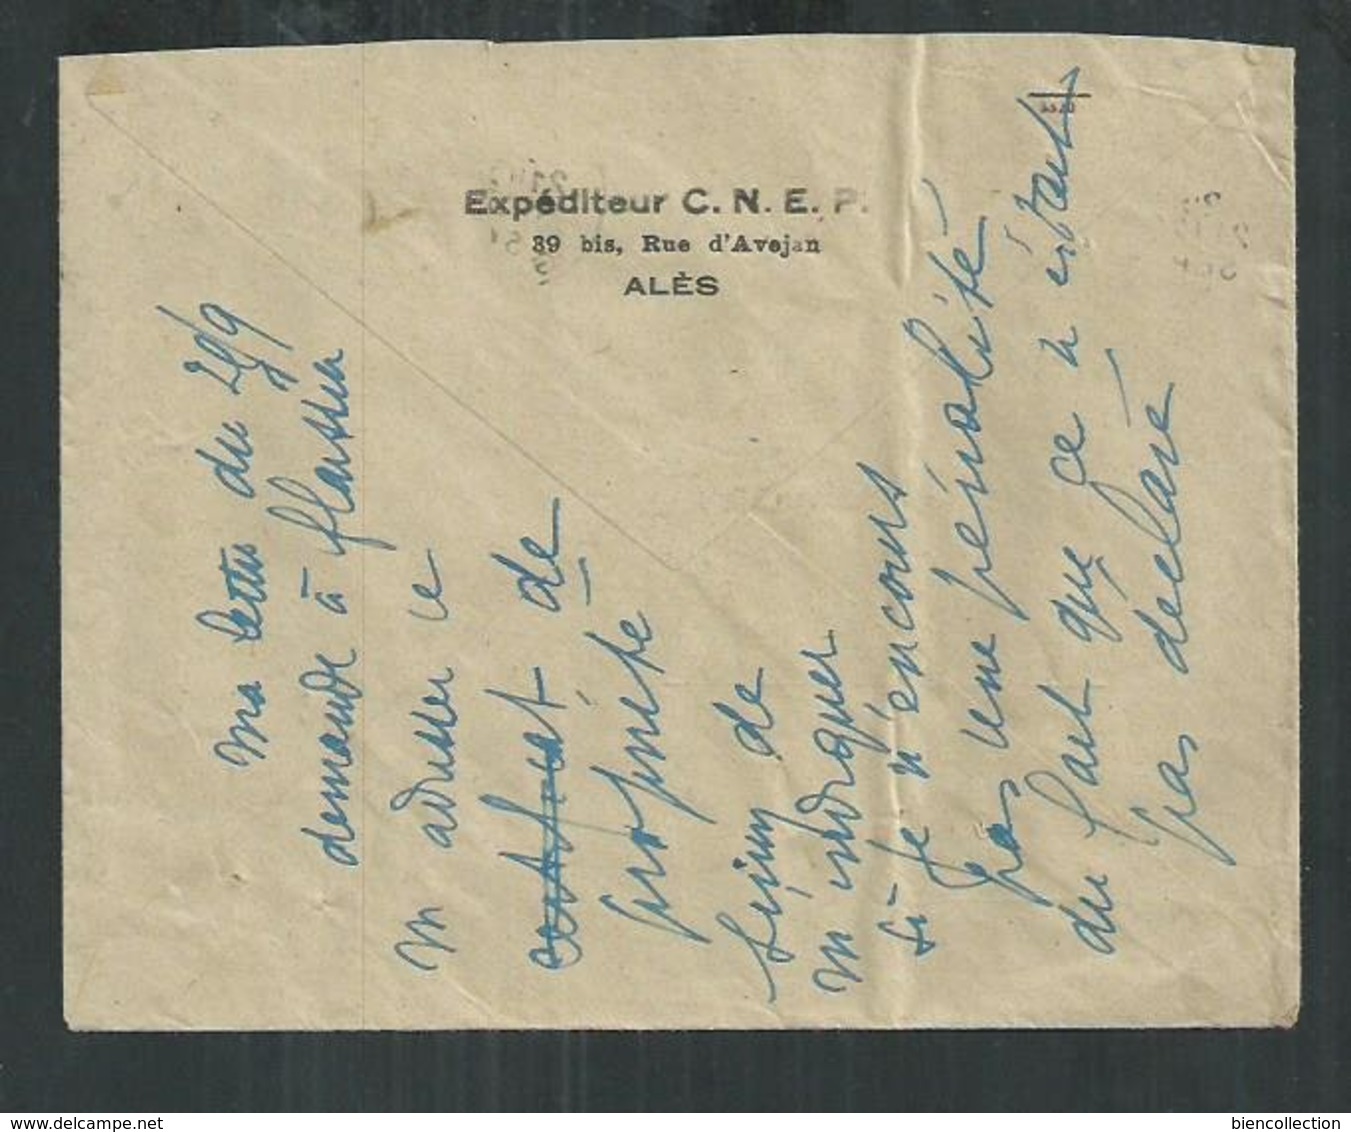 Expéditeur C. N. E. P.
39 bis, Rue d'Avejan
ALÈS
ma lettre du 29/9
demande à flassier
m adresser le
certificat de
propriété
Selim de
m indiquer
si je n'encours
pas une pénalité
du fait que ça n étant
pas déclaré
www.delcampe.net
biencollection